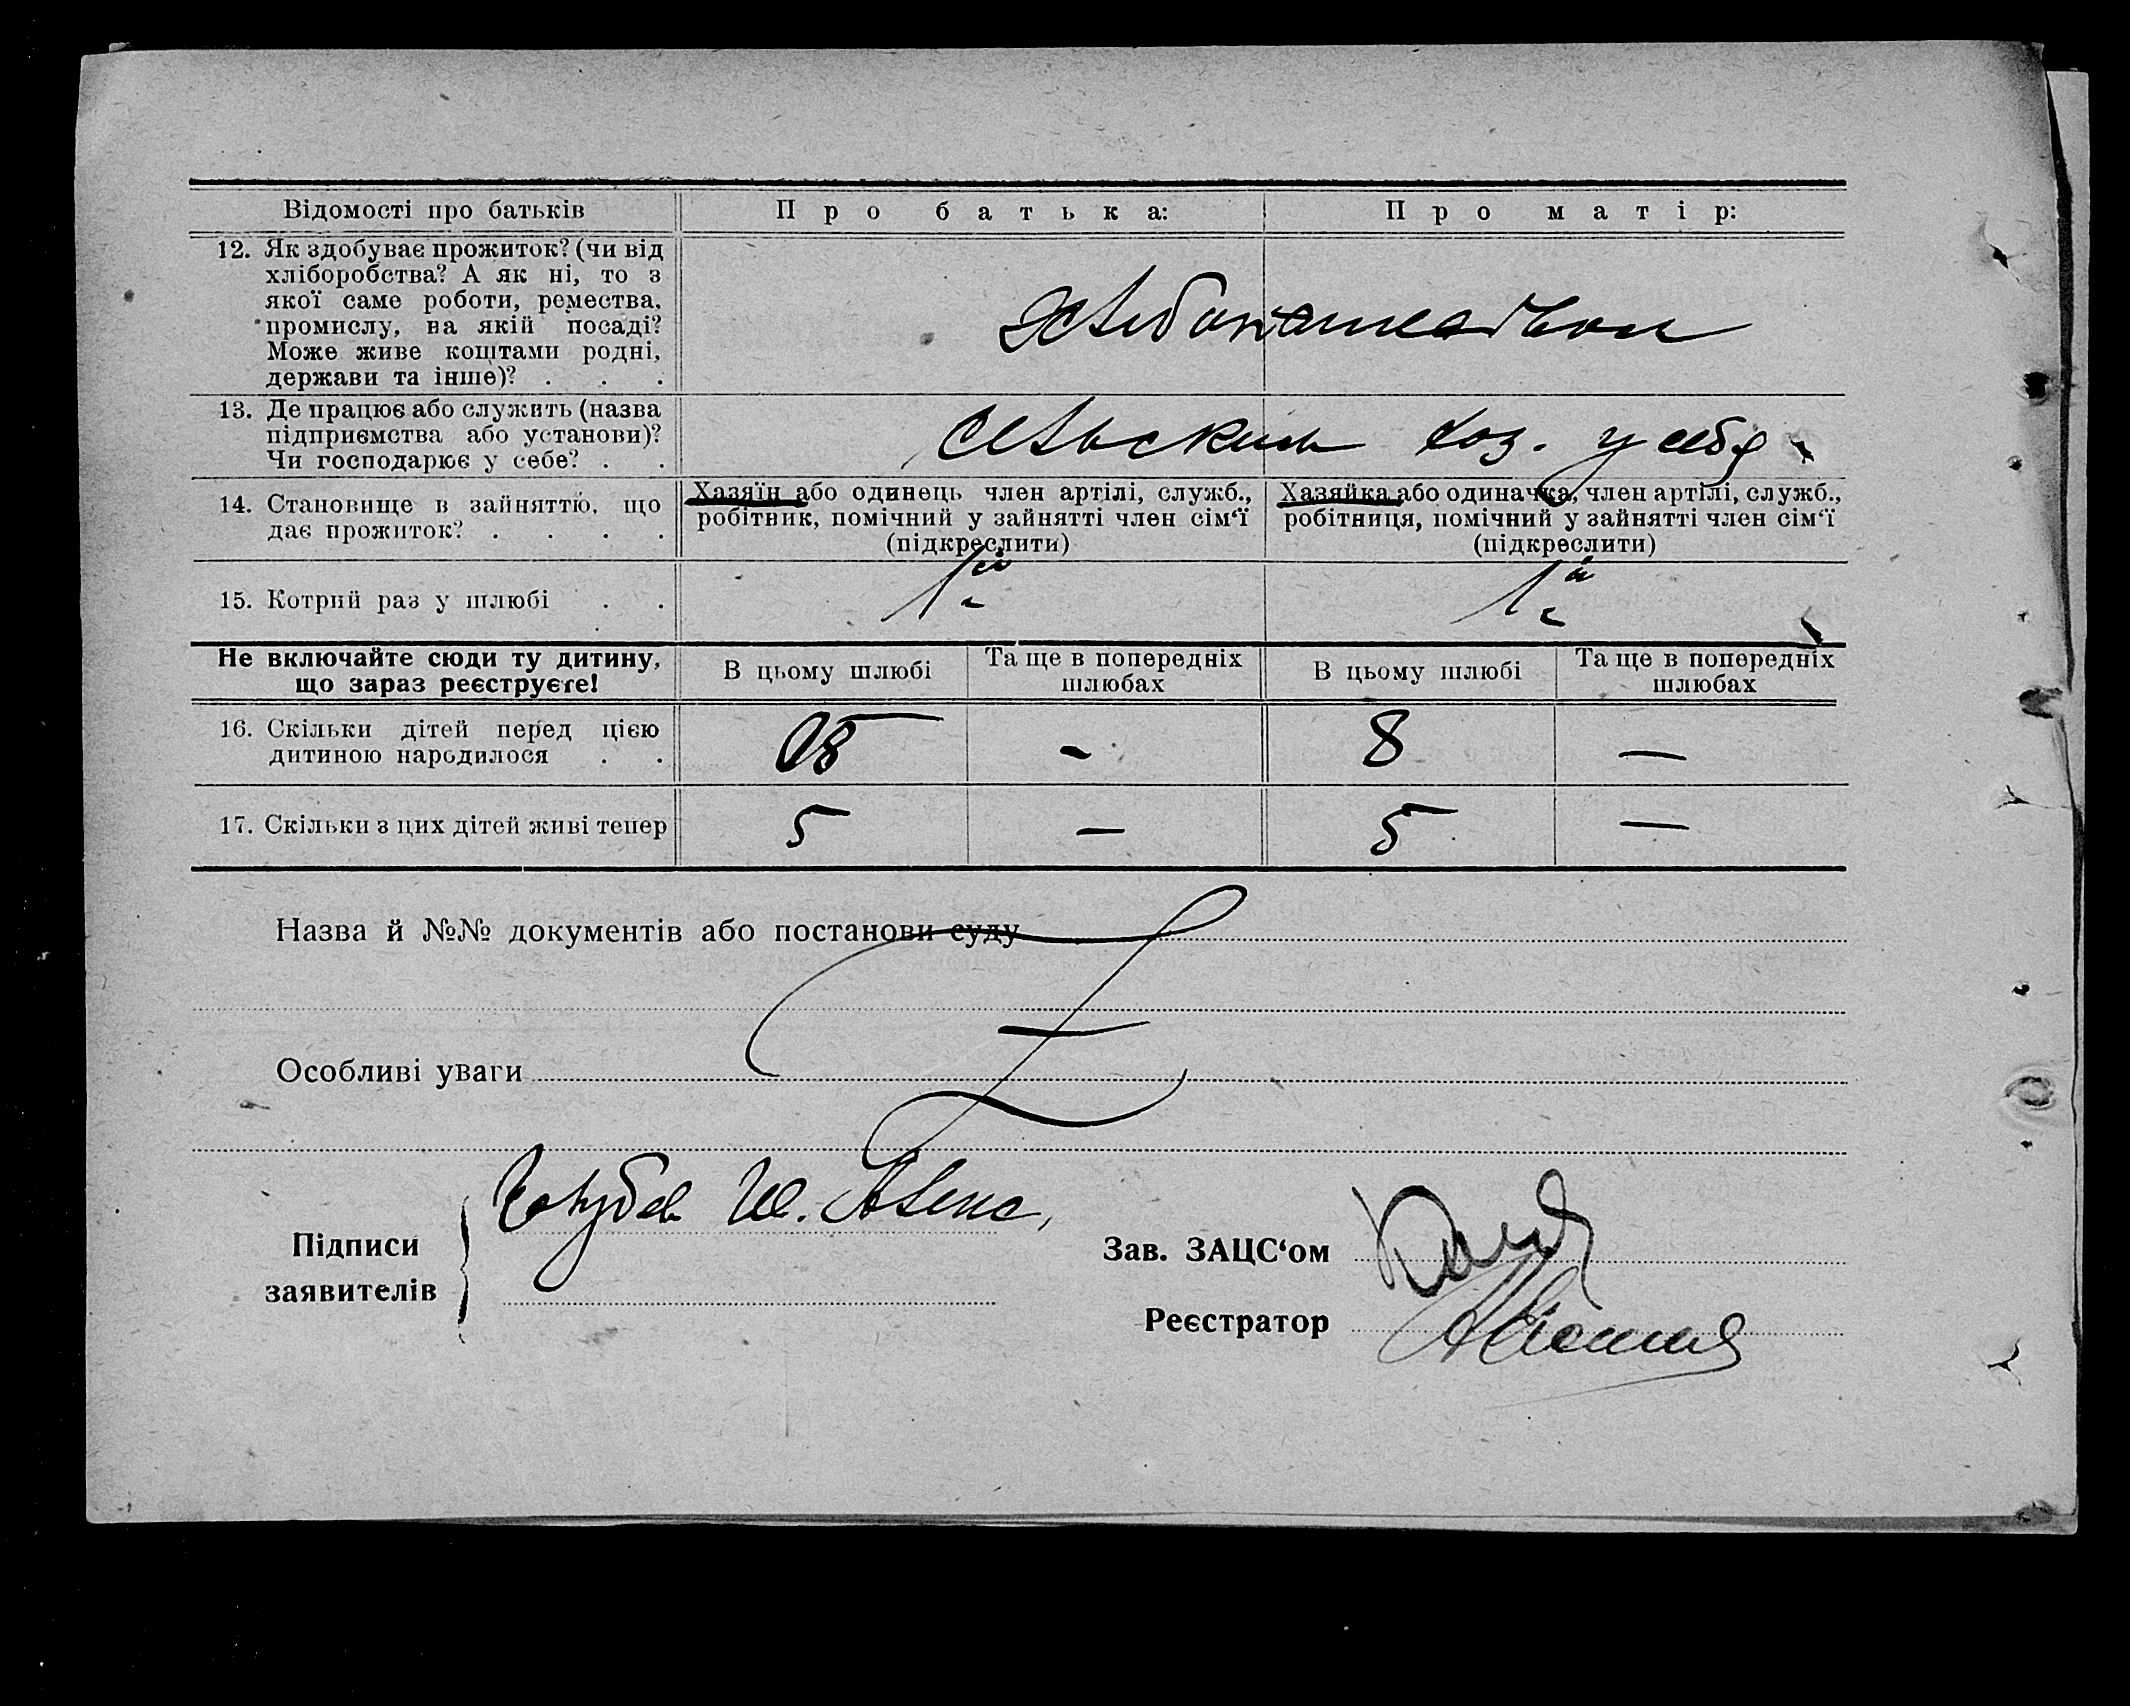 Відомості про батьків
Про батька:
Про матір:
12. Як здобуває прожиток? (чи від
хліборобства? А як ні, то з
якої саме роботи, ремества,
промислу, на якій посаді?
Може живе коштами родні,
держави та інше)? . . .
Хлебопашеством
13. Де працює або служить (назва
підприємства або установи)?
Чи господарює у себе? . .
Сельским хоз. у себя
14. Становище в зайняттю, що
дає прожиток? . . . .
Хазяїн або одинець член артілі, служб.,
робітник, помічний у зайнятті член сім‘ї
(підкреслити)
Хазяйка або одиначка, член артілі, служб.,
робітниця, помічний у зайнятті член сім‘ї
(підкреслити)
15. Котрий раз у шлюбі . .
1й
1й
Не включайте сюди ту дитину,
що зараз реєструєте!
В цьому шлюбі
Та ще в попередніх
шлюбах
В цьому шлюбі
Та ще в попередніх
шлюбах
16. Скільки дітей перед цією
дитиною народилося . .
8
-
8
—
17. Скільки з цих дітей живі тепер
5
—
5
—
Назва й №№ документів або постанови суду
Особливі уваги
Підписи
заявителів
Зав. ЗАЦС‘ом
Реєстратор